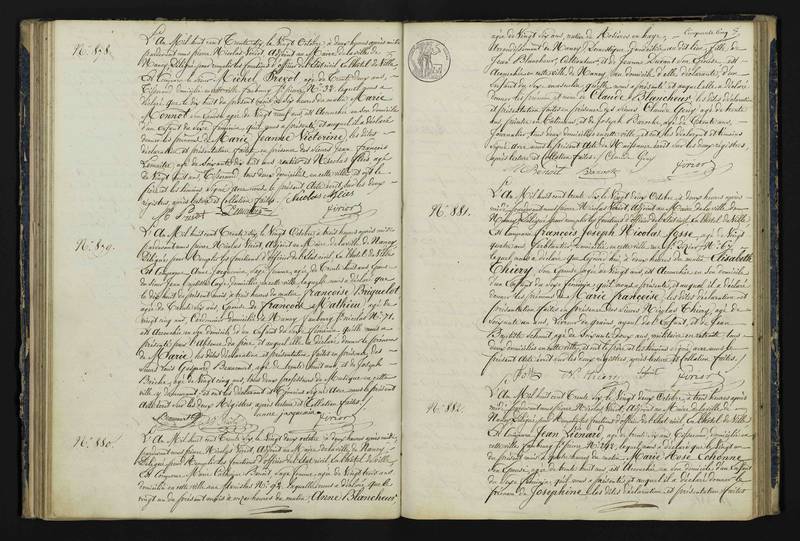 N.° 878.
L'An Mil huit cent Trente six, le Vingt Octobre, à deux heures après midi
pardevant nous pierre Nicolas Noirot, Adjoint au Maire de la ville de
Nancy, Délégué pour remplir les fonctions d'officier de l'état civil, à l'hôtel de Ville
Est Comparu le sieur Michel Prevot, âgé de Trente deux ans,
domicilié en cette ville faubourg St pierre N.° 32, lequel nous a
déclaré que le dix huit du présent mois à six heures du matin Marie
âgée de Vingt neuf ans, est Accouchée en leur domicile
d'un Enfant du sexe féminin, qu'il nous a présenté et auquel il a déclaré
donner les prénoms de Marie Jeanne Victorine, les dites
déclaration et présentation faites en présence des sieurs Jean François
âgé de soixante dix huit ans, rentier et Nicolas
âgé de Vingt huit ans, tous deux domiciliés en cette ville, et ont le
père et les témoins signé avec nous le présent Acte écrit sur les deux
registres, après lecture et Collation faites.
Prevot
Noirot
N.° 879.
L'An Mil huit cent Trente six, le Vingt Octobre, à trois heures après midi
pardevant nous pierre Nicolas Noirot, Adjoint au Maire de la ville de Nancy,
Délégué pour Remplir les fonctions d'officier de l'état civil, à l'hôtel de Ville
Est Comparue Anne Jacquemin, sage femme, âgée de Trente huit ans
domiciliée en cette ville, laquelle nous a déclaré que
le dix huit du présent mois à huit heures du matin, Françoise Briquelot
âgée de Trente six ans, Epouse de François Mathieu, âgé de
Vingt cinq ans, Cordonnier domicilié à Nancy, faubourg N.° 71,
est Accouchée en son domicile d'un Enfant du sexe féminin, qu'elle nous a
présenté pour l'Absence du père, et auquel elle a déclaré donner le prénom
de Marie, les dites déclaration et présentation faites en présence des
sieurs Louis Gaspard Beaumont, âgé de trente huit ans, et de Joseph
âgé de Vingt cinq ans, tous deux professeurs de Musique en cette
ville y demeurant, et ont la déclarante et témoins signé avec nous le présent
Acte écrit sur les deux Registres, après lecture et Collation faites.
Beaumont
anne jacquemin
Noirot
N.° 880.
L'An Mil huit cent Trente six, le Vingt deux octobre à deux heures après midi,
pardevant nous pierre Nicolas Noirot, Adjoint au Maire de la ville de Nancy,
Délégué pour Remplir les fonctions d'officier de l'état civil, à l'hôtel de ville,
Est Comparue Marie Benoit, sage femme, âgée de Vingt huit ans
domiciliée en cette ville N.° 94, laquelle nous a déclaré que le
vingt un du présent mois à onze heures du matin Anne Blancheur
âgée de Vingt six ans, native de Rosières en haye,
Arrondissement de Nancy, Domestique, domiciliée au dit lieu, fille de
Jean Blancheur, Cultivateur, et de Jeanne son Epouse, est
Accouchée en cette ville de Nancy, au domicile d'elle déclarante, d'un
Enfant du sexe masculin, qu'elle nous a présenté, et auquel elle a déclaré
donner les prénom et nom de Claude Blancheur, les dites déclaration
et présentation faites en présence des sieurs Claude âgé de trente
ans, et de Joseph âgé de trente ans,
Journalier, tous deux domiciliés en cette ville, et ont les déclarante et témoins
signé avec nous le présent Acte de Naissance écrit sur les deux registres,
après lecture et Collation faites.
M. Benoit
Noirot
N.° 881.
L'An Mil huit cent Trente six, le Vingt deux Octobre à deux heures après
midi, pardevant nous pierre Nicolas Noirot, Adjoint au Maire de la ville de
Nancy, Délégué pour remplir les fonctions d'officier de l'état civil, à l'hôtel de Ville
Est Comparu François Joseph Nicolas Josse, âgé de Vingt
quatre ans, ferblantier domicilié en cette ville, rue St Dizier N.° 67,
lequel nous a déclaré que à heures du matin Elisabeth
Thiery, son Epouse âgée de Vingt ans, est Accouchée en son domicile
d'un Enfant du sexe féminin, qu'il nous a présenté et auquel il a déclaré
donner les prénoms de Marie françoise, les dites déclaration et
présentation faites en présence des sieurs Nicolas Thiery, âgé de
soixante un ans, de grains, ayeul de l'Enfant, et de Jean
Baptiste Schmit, âgé de soixante deux ans, militaire en retraite, tous
deux domiciliés en cette ville, et ont le père et les témoins signé avec nous le
présent Acte écrit sur les deux registres, après lecture et Collation faites.
Noirot
N.° 882.
L'An Mil huit cent Trente six, le Vingt deux Octobre, à trois heures après
midi, pardevant nous pierre Nicolas Noirot, Adjoint au Maire de la ville de
Nancy, Délégué pour Remplir les fonctions d'officier de l'état civil, à l'hôtel de Ville
Est Comparu Jean Lionard, âgé de trente six ans, domicilié en
cette ville, faubourg N.° 242, lequel nous a déclaré que le vingt un
du présent mois à quatre heures du matin, Marie Rose Cohonne
son Epouse, âgée de trente huit ans est Accouchée en son domicile d'un Enfant
du sexe féminin, qu'il nous a présenté et auquel il a déclaré donner le
prénom de Josephine, les dites déclaration et présentation faites